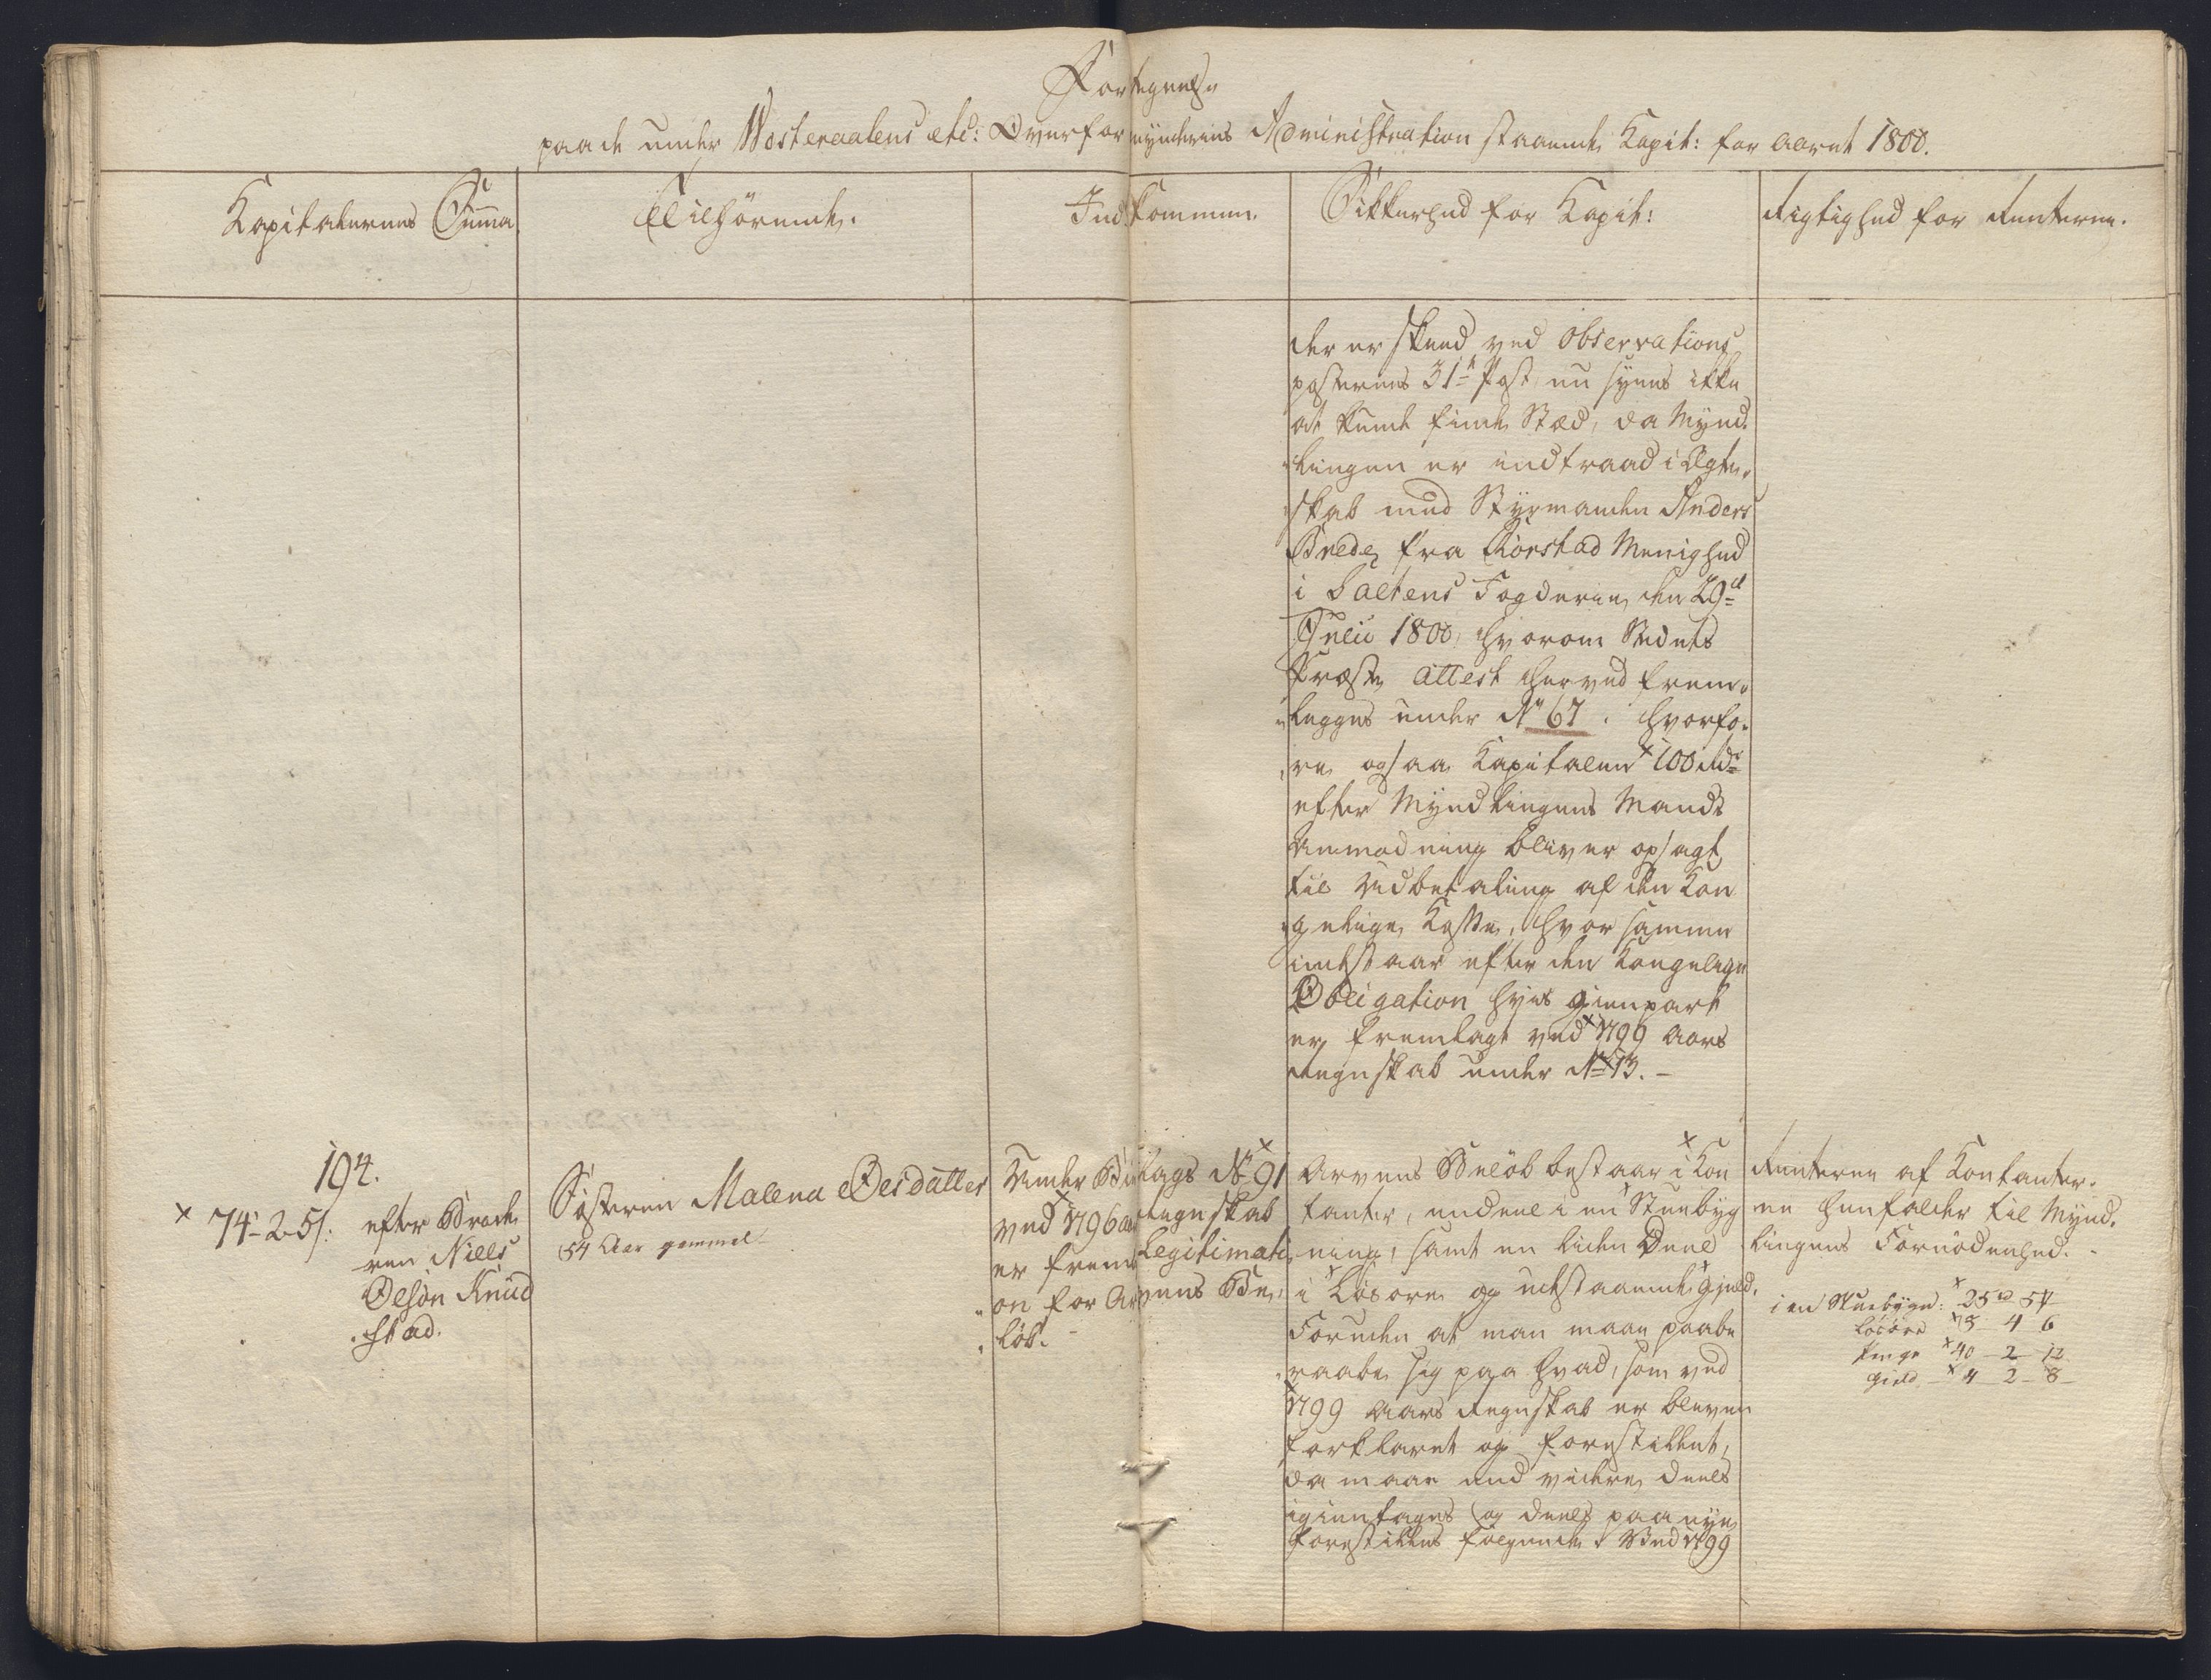 Fortegnelse
paa de under Westeraalens etc: Overformynderies Administration staaende Kapit: for Aaret 1800.
Kapitalernes Summa
Tilhörende.
Indkommen.
Sikkerhed for Kapit:
Rigtighed for Renterne.
der er skeed ved Observations
posternes 31te Post, nu synes ikke
at kunde finde Stæd, da Mynd¬
lingen er indtraad i Ægte¬
skab med Styrmanden Anders
Brede fra Rörstad Menighed
i Saltens Fogderie, den 29de
Julii 1800, hvorom Stedets
Præste Attest herved frem¬
legges under No 67. hvorfo¬
re ogsaa Kapitalen 100 rd
efter Myndlingens Mands
Anmodning bliver opsagt
til Udbetaling af den Kon
gelige Kasse, hvor samme
indestaar efter den Kongelige
Obligation hvis gienpart
er fremlagt ved 1799 Aars
Regnskab under No 13. -
194.
74-2-5 s:
efter Brode
ren Niels
Olsön Knud
stad.
Søsteren Malena Olsdatter
54 Aar gammel
Under Bilags No 91
ved 1796 Aars Regnskab
er frem Legitimati
on for Arvens Be
löb.
Arvens Belöb bestaar i Kon
tanter, endeel i en Stuebyg
ning, samt en liden Deel
i Løsøre og udestaaende Gjeld.
Foruden at man maae paabe
raabe sig paa hvad, som ved
1799 Aars Regnskab er bleven
forklaret og forestillet,
da maae end videre deels
igientages og deels paa nye
forestilles følgende: Ved 1799
Renterne af Kontanter¬
ne henfalder til Mynd¬
lingens Fornödenhed. -
i en Stuebygn: 25 rd 5 4
Løsöre 3 4 6
Penge 40 2 12
Gield 4 2 8